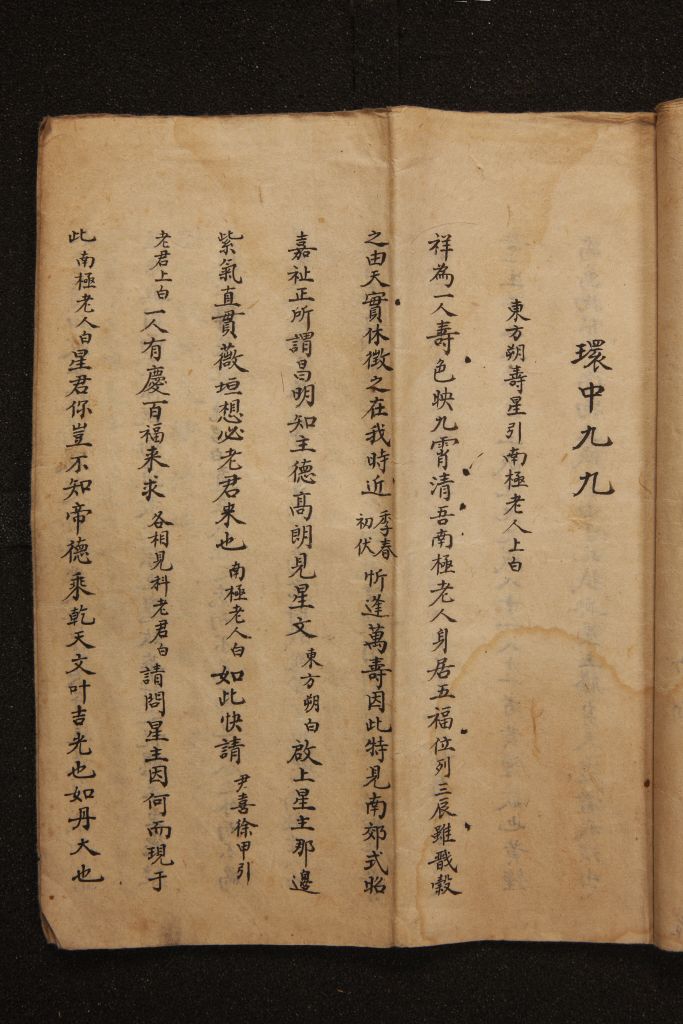 環中九九
東方朔壽星引南極老人上白
祥為一人壽色映九霄清吾南極老人身居五福位列三辰雖戩穀
之由天實休徵之在我時近季春初伏忻逢萬壽因此特見南郊式昭
嘉祉正所謂昌明知主德高朗見星文東方朔白啟上星主那邊
紫氣直貫薇垣想必老君来也南極老人白如此快請尹喜徐甲引
老君上白一人有慶百福来求各相見科老君白請問星主因何而現于
此南極老人白星君你豈不知帝德乘乾天文叶吉光也如丹大也